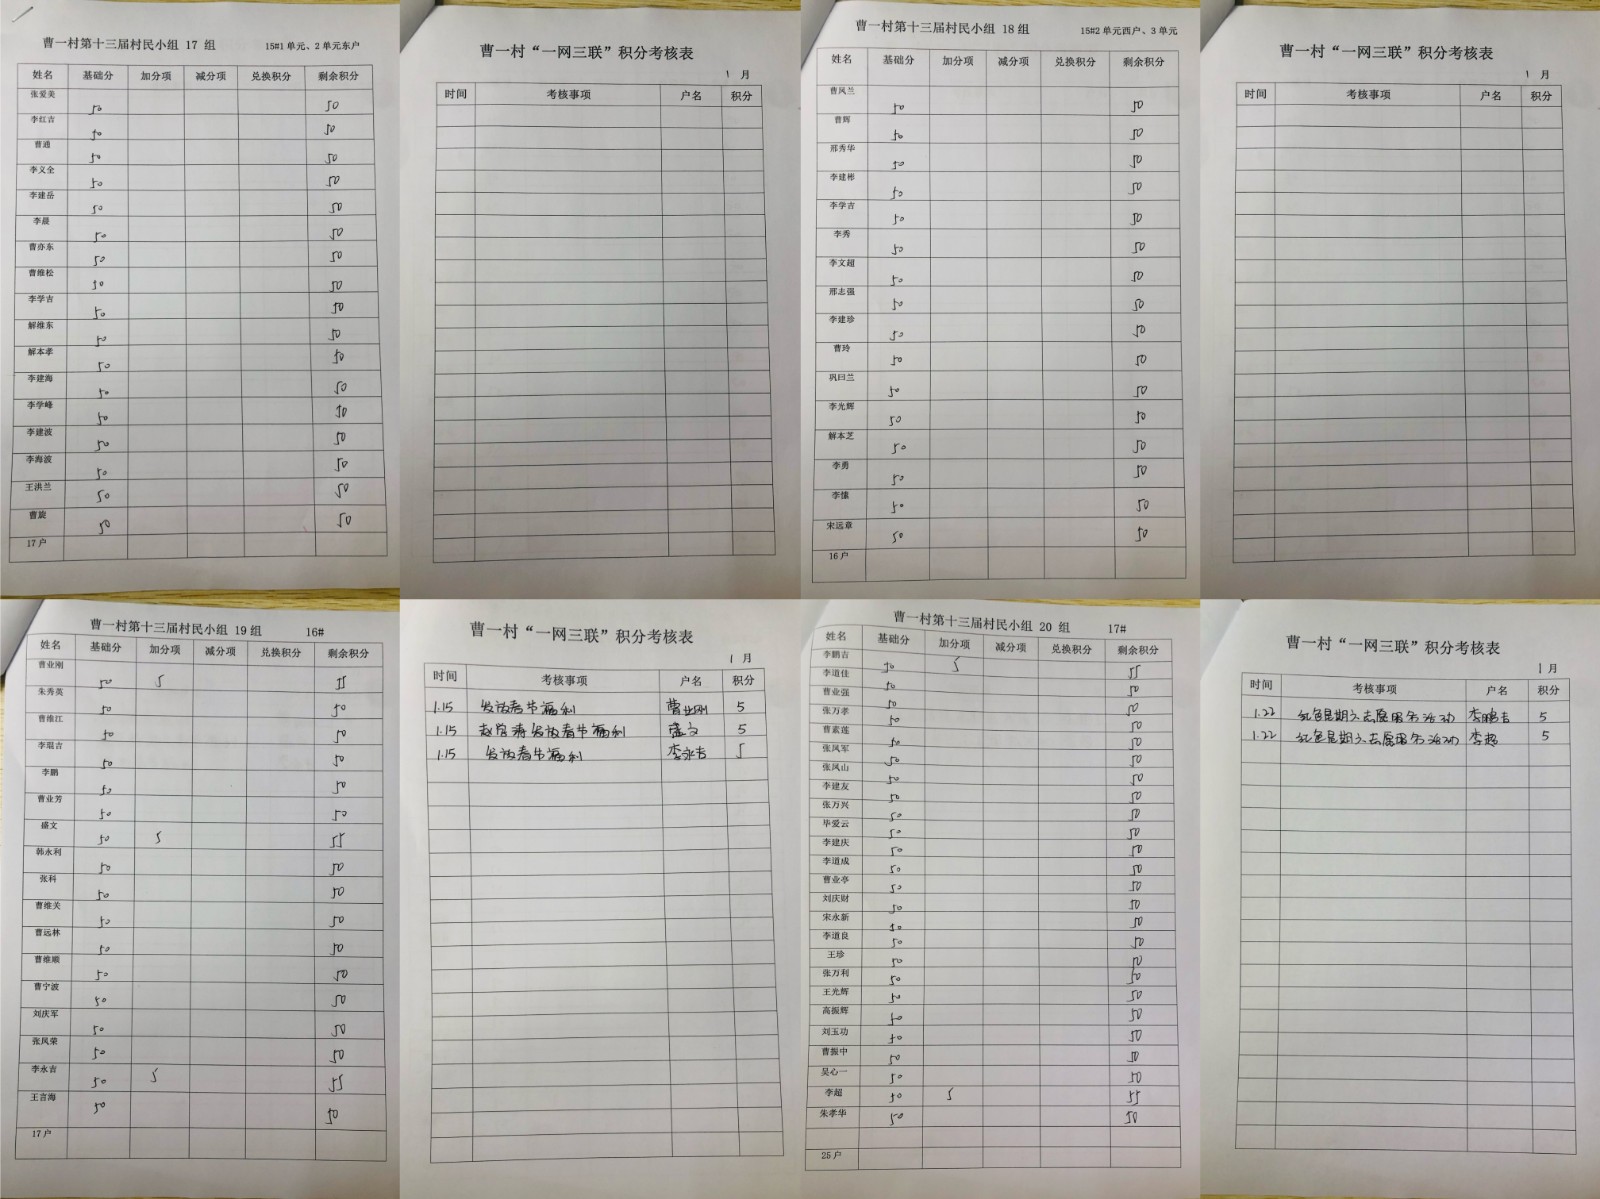 曹一村第十三届村民小组 17 组 15#1 单元、2 单元东户
姓名 基础分 加分项 减分项 兑换积分 剩余积分
张爱美 50 50
李红吉 50 50
曹通 50 50
李义全 50 50
李建岳 50 50
李晨 50 50
曹亦东 50 50
曹维松 50 50
李学吉 50 50
解维东 50 50
解本孝 50 50
李建海 50 50
李学峰 50 50
李建波 50 50
李海波 50 50
王洪兰 50 50
曹旋 50 50
17 户
曹一村“一网三联”积分考核表
1 月
时间 考核事项 户名 积分
曹一村第十三届村民小组 18 组 15#2 单元西户、3 单元
姓名 基础分 加分项 减分项 兑换积分 剩余积分
曹凤兰 50 50
曹辉 50 50
邢秀华 50 50
李建彬 50 50
李学吉 50 50
李秀 50 50
李文超 50 50
邢志强 50 50
李建珍 50 50
曹玲 50 50
巩曰兰 50 50
李光辉 50 50
解本芝 50 50
李勇 50 50
李愫 50 50
宋远章 50 50
16 户
曹一村“一网三联”积分考核表
1 月
时间 考核事项 户名 积分
曹一村第十三届村民小组 19 组 16#
姓名 基础分 加分项 减分项 兑换积分 剩余积分
曹业刚 50 5 55
朱秀英 50 50
曹维江 50 50
李琨吉 50 50
李鹏 50 50
曹业芳 50 50
盛文 50 5 55
韩永利 50 50
张科 50 50
曹维关 50 50
曹远林 50 50
曹维顺 50 50
曹宁波 50 50
刘庆军 50 50
张凤荣 50 50
李永吉 50 5 55
王言海 50 50
17 户
曹一村“一网三联”积分考核表
1 月
时间 考核事项 户名 积分
1.15 发放春节福利 曹业刚 5
1.15 发放春节福利 盛文 5
1.15 发放春节福利 李永吉 5
曹一村第十三届村民小组 20 组 17#
姓名 基础分 加分项 减分项 兑换积分 剩余积分
李鹏吉 50 5 55
李道佳 50 50
曹业强 50 50
张万孝 50 50
曹素莲 50 50
张凤军 50 50
张凤山 50 50
李建友 50 50
张万兴 50 50
毕爱云 50 50
李建庆 50 50
李道成 50 50
曹业亭 50 50
刘庆财 50 50
宋永新 50 50
李道良 50 50
王珍 50 50
张万利 50 50
王光辉 50 50
高振辉 50 50
刘玉功 50 50
曹振中 50 50
吴心一 50 50
李超 50 5 55
朱孝华 50 50
25 户
曹一村“一网三联”积分考核表
1 月
时间 考核事项 户名 积分
1.22 红色星期六志愿服务活动 李鹏吉 5
1.22 红色星期六志愿服务活动 李超 5